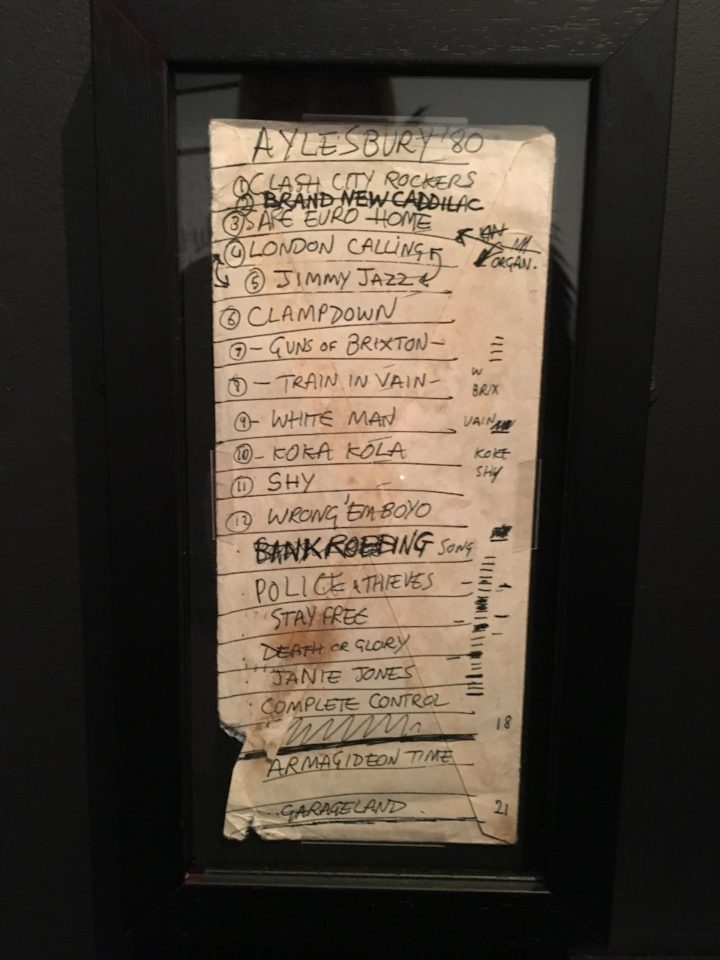 AYLESBURY '80
① CLASH CITY ROCKERS
② BRAND NEW CADDILAC
③ SAFE EURO HOME
④ LONDON CALLING
ORGAN.
⑤ JIMMY JAZZ
⑥ CLAMPDOWN
⑦ - GUNS OF BRIXTON -
⑧ - TRAIN IN VAIN -
W
BRIX
⑨ - WHITE MAN
VAIN
⑩ - KOKA KOLA
KOKE
⑪ SHY
SHY
⑫ WRONG 'EM BOYO
BANK ROBBING SONG
POLICE & THIEVES
STAY FREE
DEATH OR GLORY
JANIE JONES
COMPLETE CONTROL
18
ARMAGIDEON TIME
GARAGELAND
21